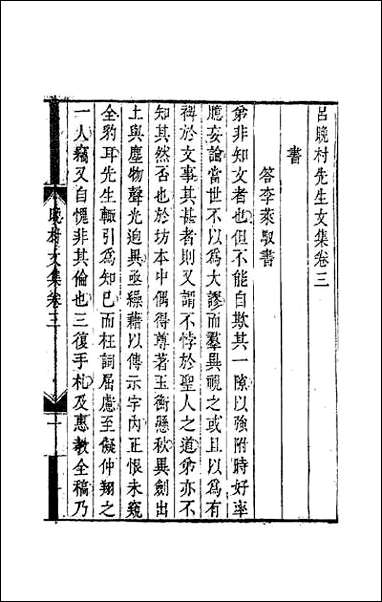 呂晚村先生文集卷三
書
答李萊馭書
弟非知文者也但不能自欺其一隙以強附時好率
臆妄論當世不以爲大謬而羣異視之或且以爲有
裨於文事其甚者則又謂不悖於聖人之道弟亦不
知其然否也於坊本中偶得尊著玉衡懸秋異劍出
土與塵物聲光迥異亟繰藉以傳示宇內正恨未窺
全豹耳先生輙引爲知已而枉詞屈慮至儗仲翔之
一人竊又自愧非其倫也三復手札及惠教全稿乃
晚村文集卷三
一